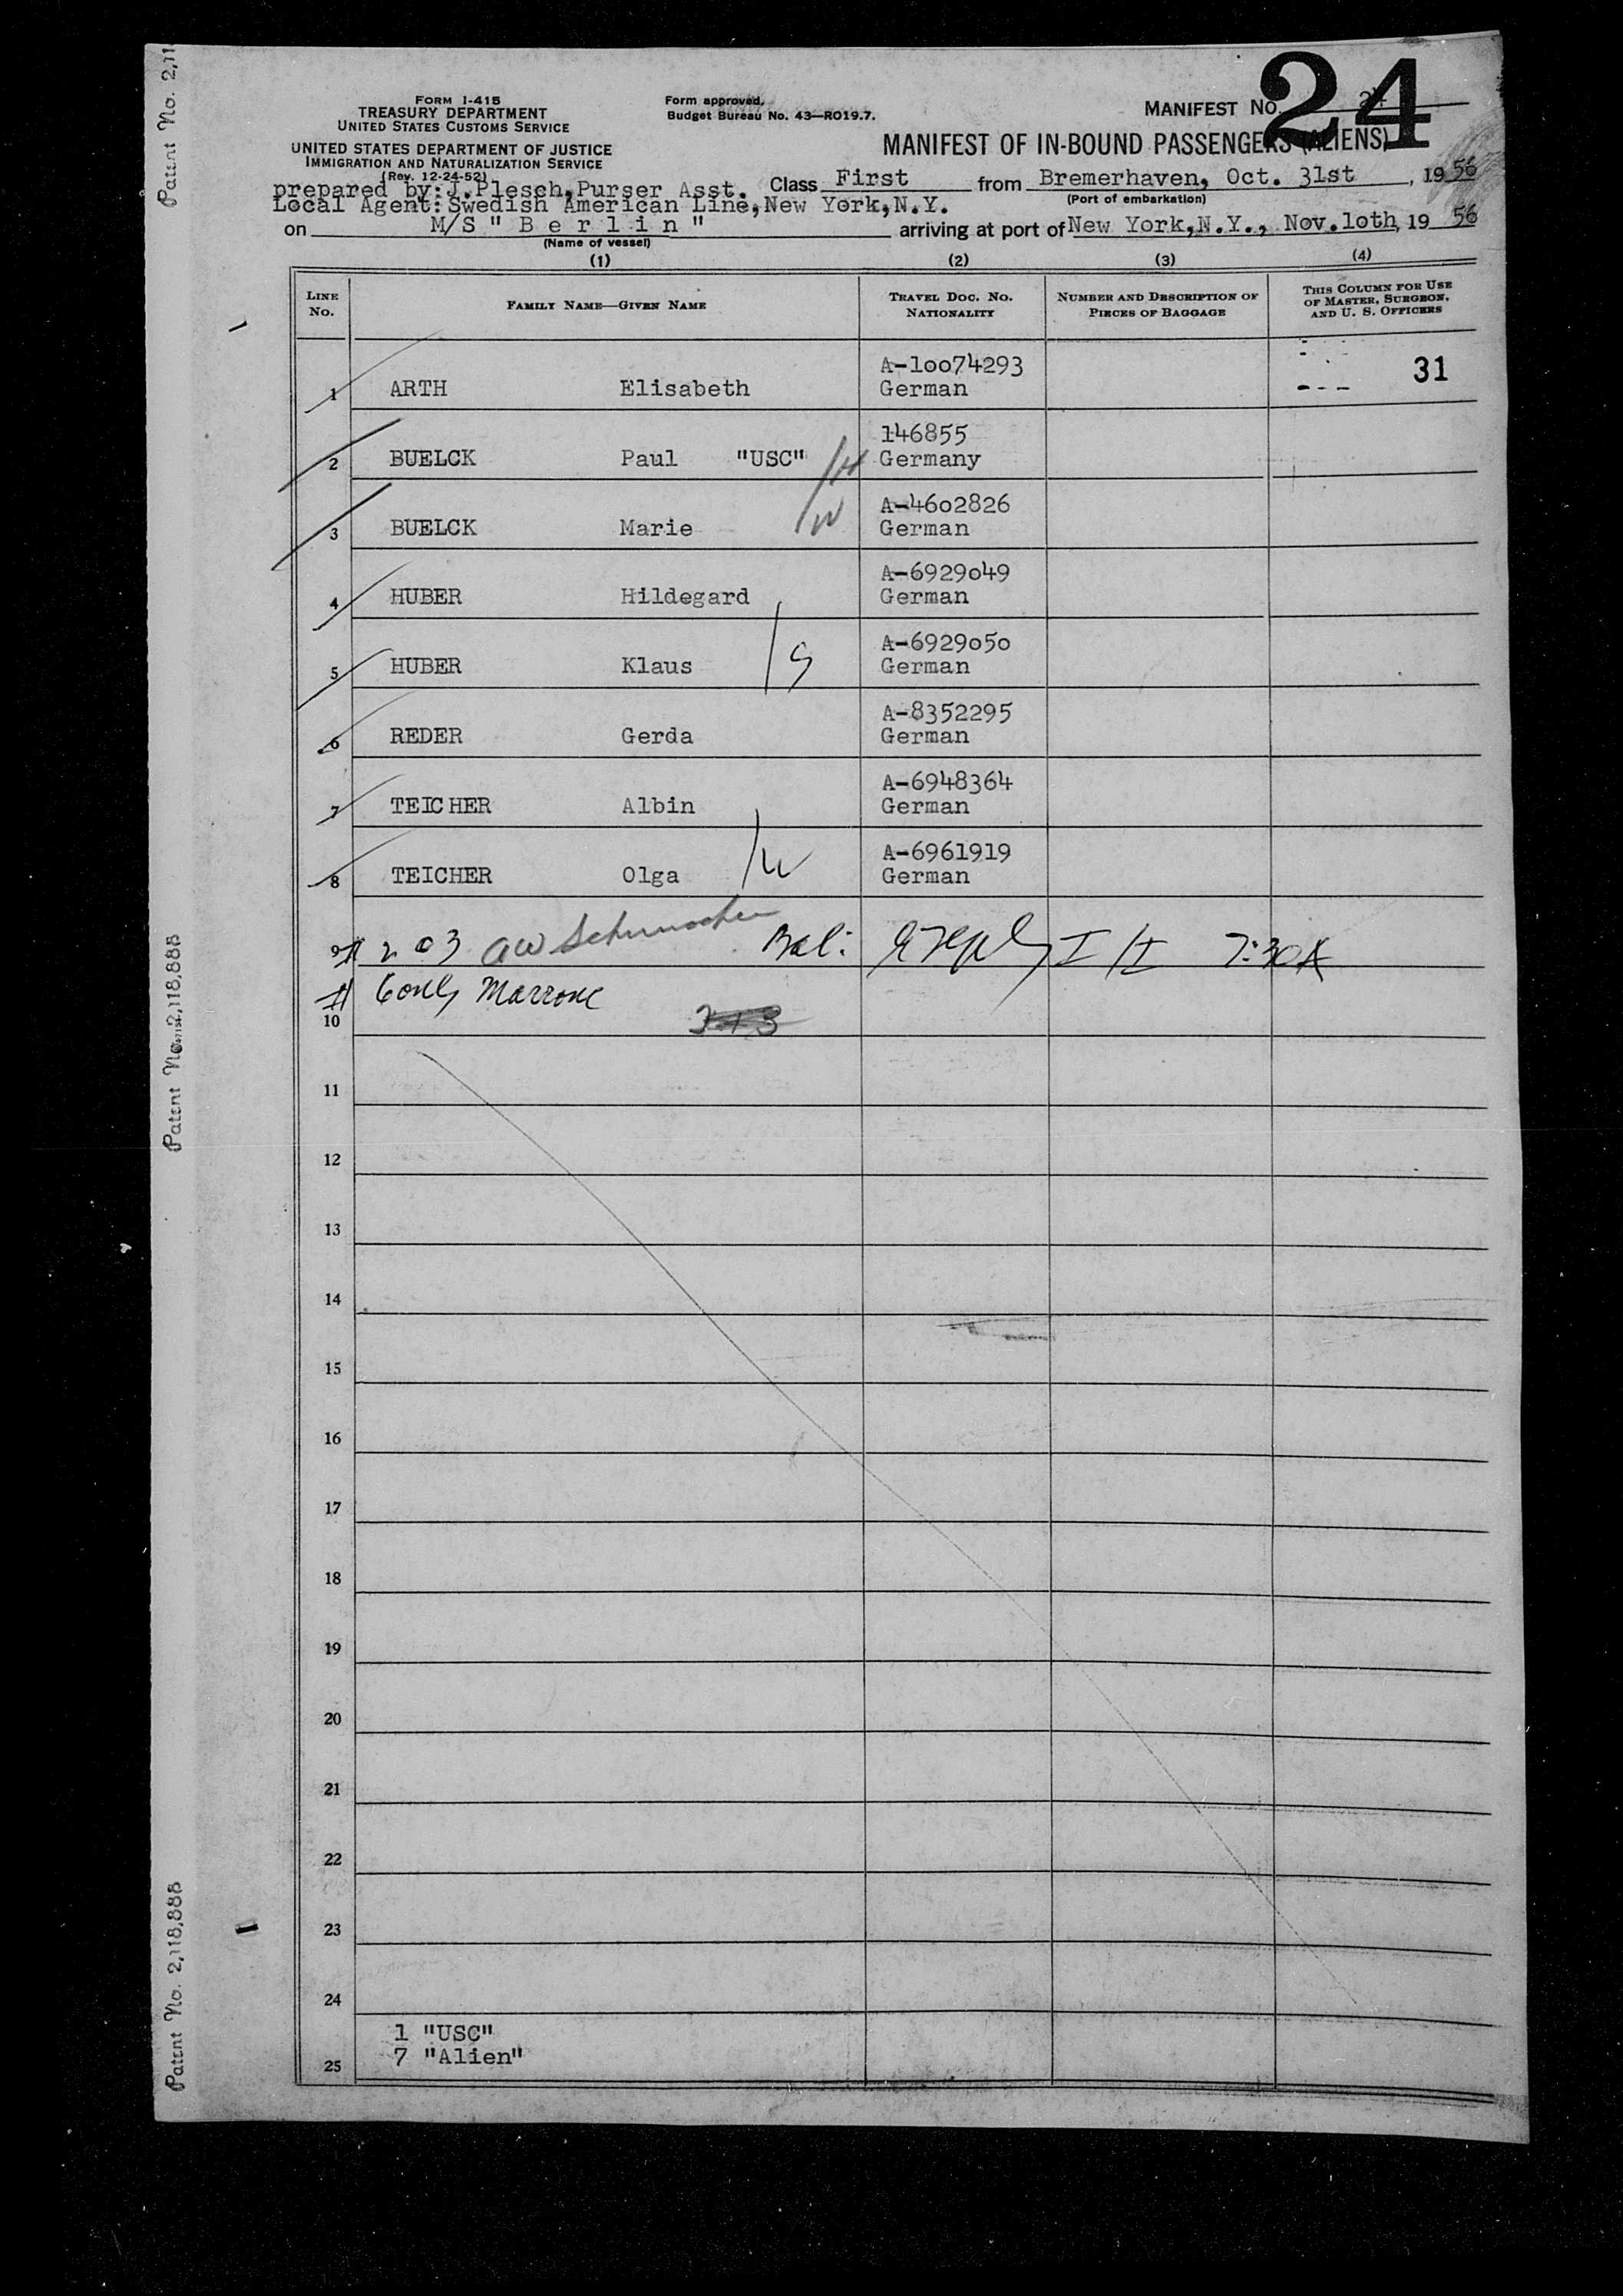 Patent No. 2,11
24
FORM I-415
TREASURY DEPARTMENT
UNITED STATES CUSTOMS SERVICE
UNITED STATES DEPARTMENT OF JUSTICE
IMMIGRATION AND NATURALIZATION SERVICE
(Rev. 12-24-52)
Form approved.
Budget Bureau No. 43—RO19.7.
MANIFEST NO. 24
MANIFEST OF IN-BOUND PASSENGERS (ALIENS)
prepared by:J.Plesch,Purser Asst. Class First from Bremerhaven, Oct. 31st , 19 56
(Port of embarkation)
Local Agent:Swedish American Line,New York,N.Y.
on M/S " B e r l i n " arriving at port of New York,N.Y., Nov.1oth, 19 56
(Name of vessel)
(1) (2) (3) (4)
LINE No. FAMILY NAME—GIVEN NAME TRAVEL DOC. NO. NATIONALITY NUMBER AND DESCRIPTION OF PIECES OF BAGGAGE THIS COLUMN FOR USE OF MASTER, SURGEON, AND U. S. OFFICERS
A-1oo74293 31
1 ARTH Elisabeth German
146855
2 BUELCK Paul "USC" H Germany
A-46o2826
3 BUELCK Marie W German
A-6929o49
4 HUBER Hildegard German
A-6929o5o
5 HUBER Klaus S German
A-8352295
6 REDER Gerda German
A-6948364
7 TEICHER Albin German
A-6961919
8 TEICHER Olga W German
9 203 aw Schumacher Bal: I/I 7:30A
6 only Marrone
10
11
12
13
14
15
16
17
18
19
20
21
22
23
24
1 "USC"
7 "Alien"
25
Patent No. 2,118,888
Patent No. 2,118,888